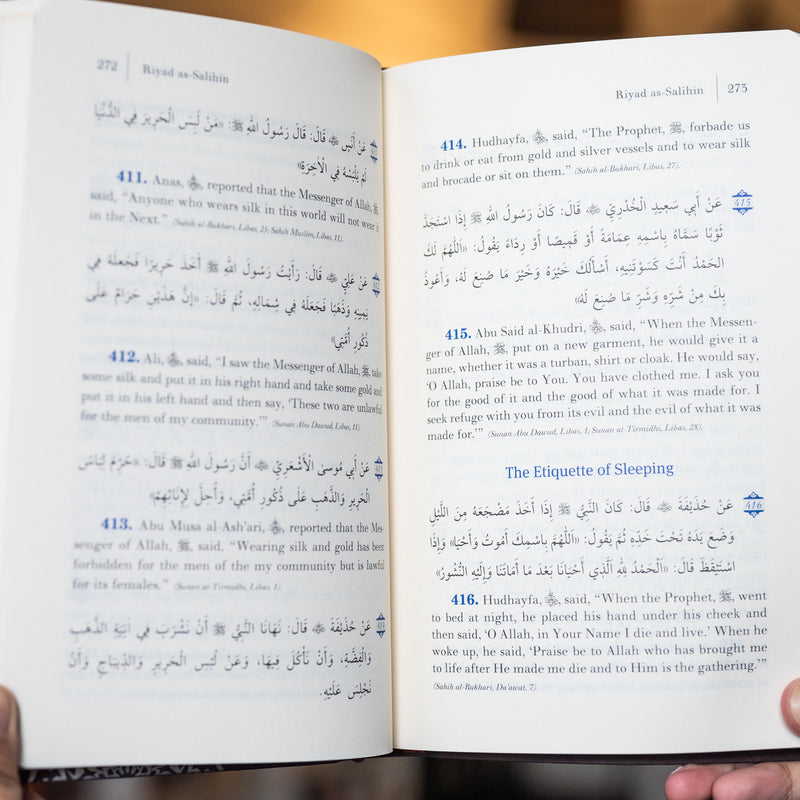 272 Riyad as-Salihin
عَنْ أَنَسٍ ﷺ قَالَ: قَالَ رَسُولُ اللهِ ﷺ: «مَنْ لَبِسَ الْحَرِيرَ فِي الدُّنْيَا
لَمْ يَلْبَسْهُ فِي الْآخِرَةِ»
411. Anas, reported that the Messenger of Allah, ﷺ,
said, “Anyone who wears silk in this world will not wear it
in the Next.” (Sahih al-Bukhari, Libas, 25; Sahih Muslim, Libas, 11).
عَنْ عَلِيٍّ قَالَ: رَأَيْتُ رَسُولَ اللهِ ﷺ أَخَذَ حَرِيرًا فَجَعَلَهُ فِي
يَمِينِهِ وَذَهَبًا فَجَعَلَهُ فِي شِمَالِهِ، ثُمَّ قَالَ: «إِنَّ هَذَيْنِ حَرَامٌ عَلَى
ذُكُورِ أُمَّتِي»
412. Ali, said, “I saw the Messenger of Allah, ﷺ, take
some silk and put it in his right hand and take some gold and
put it in his left hand and then say, ‘These two are unlawful
for the men of my community.’” (Sunan Abu Dawud, Libas, 11).
عَنْ أَبِي مُوسَى الْأَشْعَرِيِّ أَنَّ رَسُولَ اللهِ ﷺ قَالَ: «حُرِّمَ لِبَاسُ
الْحَرِيرِ وَالذَّهَبِ عَلَى ذُكُورِ أُمَّتِي، وَأُحِلَّ لِإِنَاثِهِمْ»
413. Abu Musa al-Ash’ari, reported that the Mes-
senger of Allah, ﷺ, said, “Wearing silk and gold has been
forbidden for the men of the my community but is lawful
for its females.” (Sunan at-Tirmidhi, Libas, 1).
عَنْ حُذَيْفَةَ قَالَ: نَهَانَا النَّبِيُّ ﷺ أَنْ نَشْرَبَ فِي آنِيَةِ الذَّهَبِ
وَالْفِضَّةِ، وَأَنْ نَأْكُلَ فِيهَا، وَعَنْ لُبْسِ الْحَرِيرِ وَالدِّيبَاجِ وَأَنْ
نَجْلِسَ عَلَيْهِ.
Riyad as-Salihin 273
414. Hudhayfa, said, “The Prophet, ﷺ, forbade us
to drink or eat from gold and silver vessels and to wear silk
and brocade or sit on them.” (Sahih al-Bukhari, Libas, 27).
415 عَنْ أَبِي سَعِيدٍ الْخُدْرِيِّ قَالَ: كَانَ رَسُولُ اللهِ ﷺ إِذَا اسْتَجَدَّ
ثَوْبًا سَمَّاهُ بِاسْمِهِ عِمَامَةً أَوْ قَمِيصًا أَوْ رِدَاءً يَقُولُ: «اللَّهُمَّ لَكَ
الْحَمْدُ أَنْتَ كَسَوْتَنِيهِ، أَسْأَلُكَ خَيْرَهُ وَخَيْرَ مَا صُنِعَ لَهُ، وَأَعُوذُ
بِكَ مِنْ شَرِّهِ وَشَرِّ مَا صُنِعَ لَهُ»
415. Abu Said al-Khudri, said, “When the Messen-
ger of Allah, ﷺ, put on a new garment, he would give it a
name, whether it was a turban, shirt or cloak. He would say,
‘O Allah, praise be to You. You have clothed me. I ask you
for the good of it and the good of what it was made for. I
seek refuge with you from its evil and the evil of what it was
made for.’” (Sunan Abu Dawud, Libas, 1; Sunan at-Tirmidhi, Libas, 28).
The Etiquette of Sleeping
416 عَنْ حُذَيْفَةَ قَالَ: كَانَ النَّبِيُّ ﷺ إِذَا أَخَذَ مَضْجَعَهُ مِنَ اللَّيْلِ
وَضَعَ يَدَهُ تَحْتَ خَدِّهِ ثُمَّ يَقُولُ: «اللَّهُمَّ بِاسْمِكَ أَمُوتُ وَأَحْيَا» وَإِذَا
اسْتَيْقَظَ قَالَ: «الْحَمْدُ لِلهِ الَّذِي أَحْيَانَا بَعْدَ مَا أَمَاتَنَا وَإِلَيْهِ النُّشُورُ»
416. Hudhayfa, said, “When the Prophet, ﷺ, went
to bed at night, he placed his hand under his cheek and
then said, ‘O Allah, in Your Name I die and live.’ When he
woke up, he said, ‘Praise be to Allah who has brought me
to life after He made me die and to Him is the gathering.’”
(Sahih al-Bukhari, Da’awat, 7).